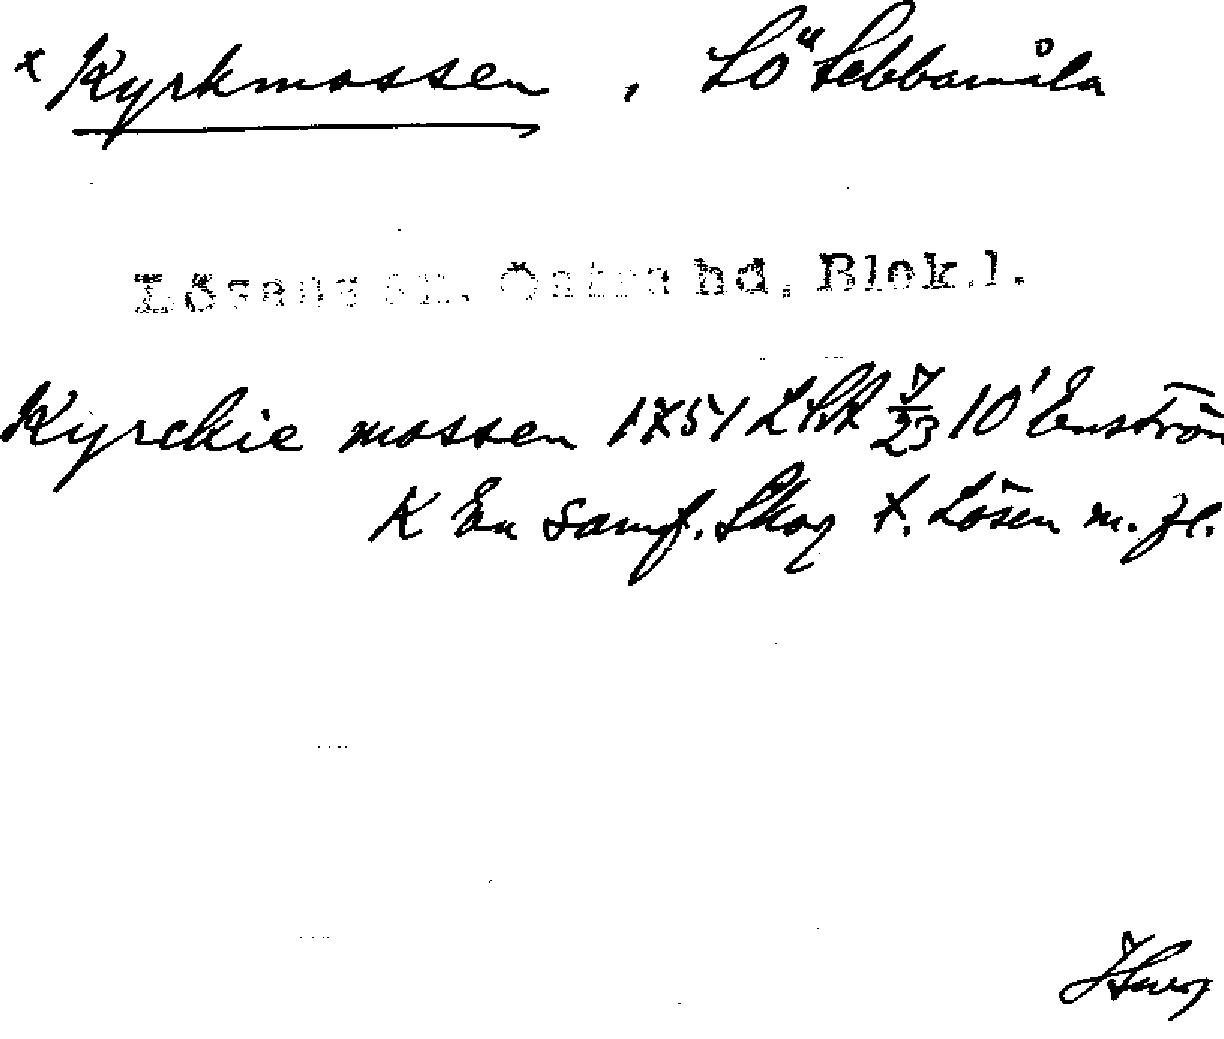 x Kyrkmossen, Lö Sebbamåla
Lösens sn. Östra hd, Blek.l.
Kyrckie mossen 1751 LSA 7/23 10' Enström
K En samf. Skog t. Lösen m. fl.